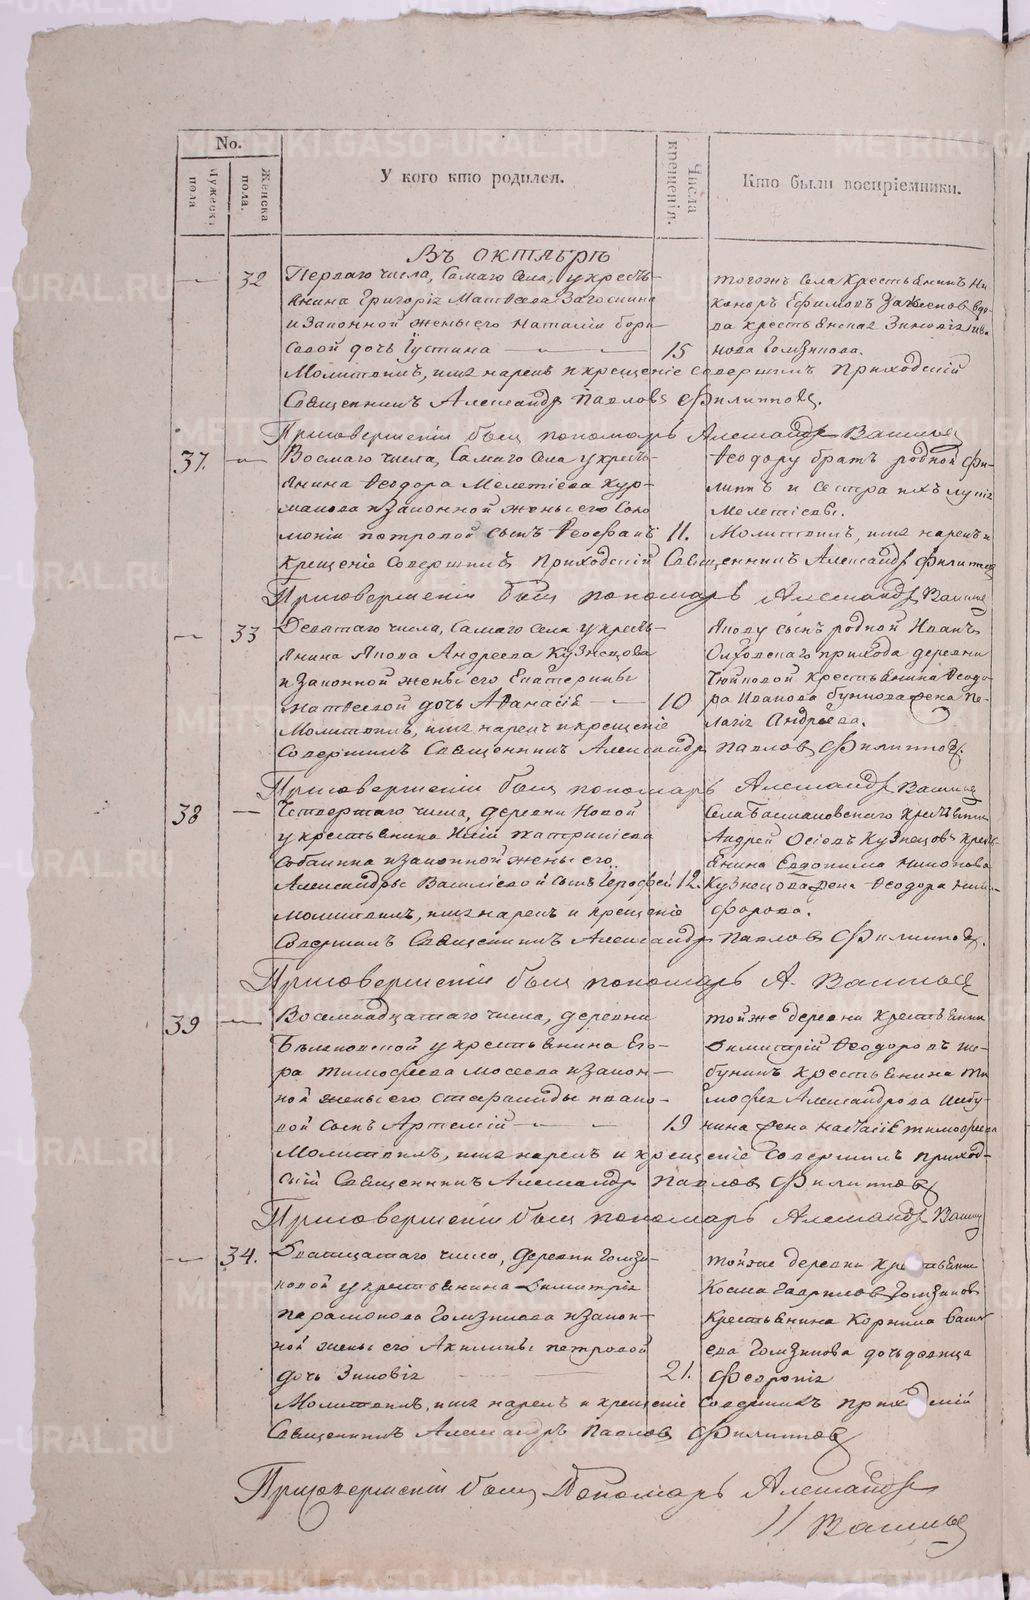 No.
Мужеска пола
Женска пола.
У кого кто родился.
Числа крещенія.
Кто были воспріемники.
Въ октябрѣ
32
Перваго числа, Самаго Села, у кресть-
янина Григорія Матвеева Загоскина
и Законной жены его Наталіи Бори-
совой дочь Іустина 15
тогожъ Села Крестьянинъ Ни
каноръ Ефимовъ вдо-
ва крестьянская Зиновія Ива
нова Гомзикова.
Молитвилъ, имя нарекъ и крещеніе совершилъ Приходскій
Священникъ Александръ Павловъ Филипповъ.
При совершеніи былъ пономарь Александръ
37.
Восмаго числа, Самаго Села у кресть-
янина Ѳеодора Мелетіева Кур-
макова и Законной жены его Соло
моніи Петровой сынъ Ѳеофанъ 11.
Ѳеодору братъ родной Фи-
липпъ и сестра ихъ
Мелетіевы.
Молитвилъ, имя нарекъ и
крещеніе Совершилъ Приходскій Священникъ Александръ Филиппов
При совершеніи былъ пономарь Александръ
33
Девятаго числа, Самаго Села у кресть-
янина Якова Андреева Кузнецова
и Законной жены его Екатерины
Матвеевой дочь Аѳанасія 10
Якову сынъ родной Иванъ
прихода деревни
крестьянина Ѳеодо-
ра Иванова жена Пе-
лагія Андреева.
Молитвилъ, имя нарекъ и крещеніе
Совершилъ Священникъ Александръ Павловъ Филипповъ.
При совершеніи былъ пономарь Александръ
38
Четвертаго числа, деревни Новой
у крестьянина
и законной жены его
Александры Василіевой сынъ Іероѳей 12.
Села Басмановскаго
Андрей Кузнецовъ
янина Евдокима
Кузнецова жена Ѳеодора Ники-
форова.
Молитвилъ, имя нарекъ и крещеніе
Совершилъ Священникъ Александръ Павловъ Филипповъ.
При совершеніи былъ пономарь А.
39
Восемнадцатаго числа, деревни
у крестьянина Его-
ра Тимофеева Мосеева и закон-
ной жены его Ивано-
вой сынъ Артемій 19
тойже деревни крестьянин
Димитрій Ѳеодоровъ Ше-
бунинъ крестьянина Ти
мофея Александрова Шебу-
нина жена Тимофеева
Молитвилъ, имя нарекъ и крещеніе Совершилъ приход-
скій Священникъ Александръ Павловъ Филипповъ
При совершеніи былъ пономарь Александръ
34.
Дватцатаго числа, деревни Гомзи-
ковой у крестьянина Димитрія
Парамонова Гомзикова и закон-
ной жены его Акилины Петровой
дочь Зиновія 21.
тойже деревни
Косма Гавриловъ Гомзиковъ
Крестьянина Корнила Васил
ева Гомзикова дочь девица
Февронія
Молитвилъ, имя нарекъ и крещеніе Совершилъ
Священникъ Александръ Павловъ Филипповъ
При совершеніи былъ Пономарь Александръ
METRIKI.GASO-URAL.RU